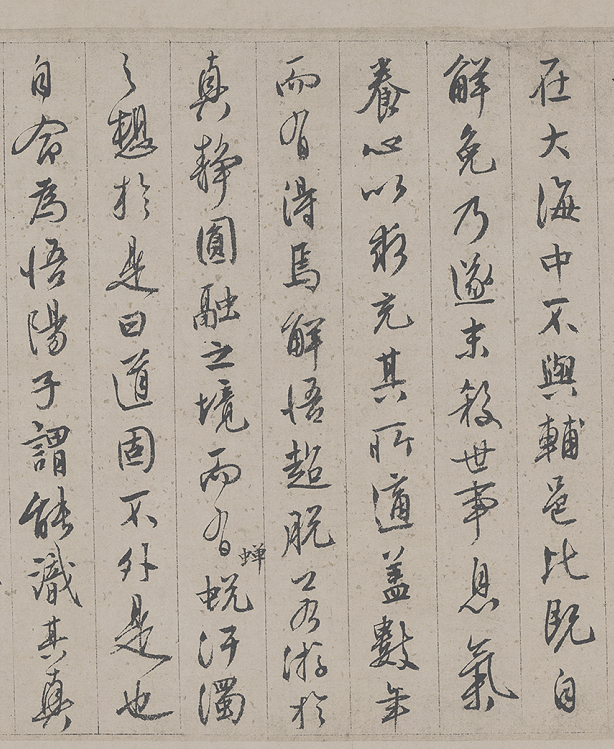 在大海中不與輔邑比既自
解免乃遂末殺世事息氣
養心以求充其所適蓋數年
而有得焉解悟超脫公若游於
真靜圓融之境而有蟬蛻汙濁
之想於是曰道固不外是也
自命為悟陽子謂能識其真